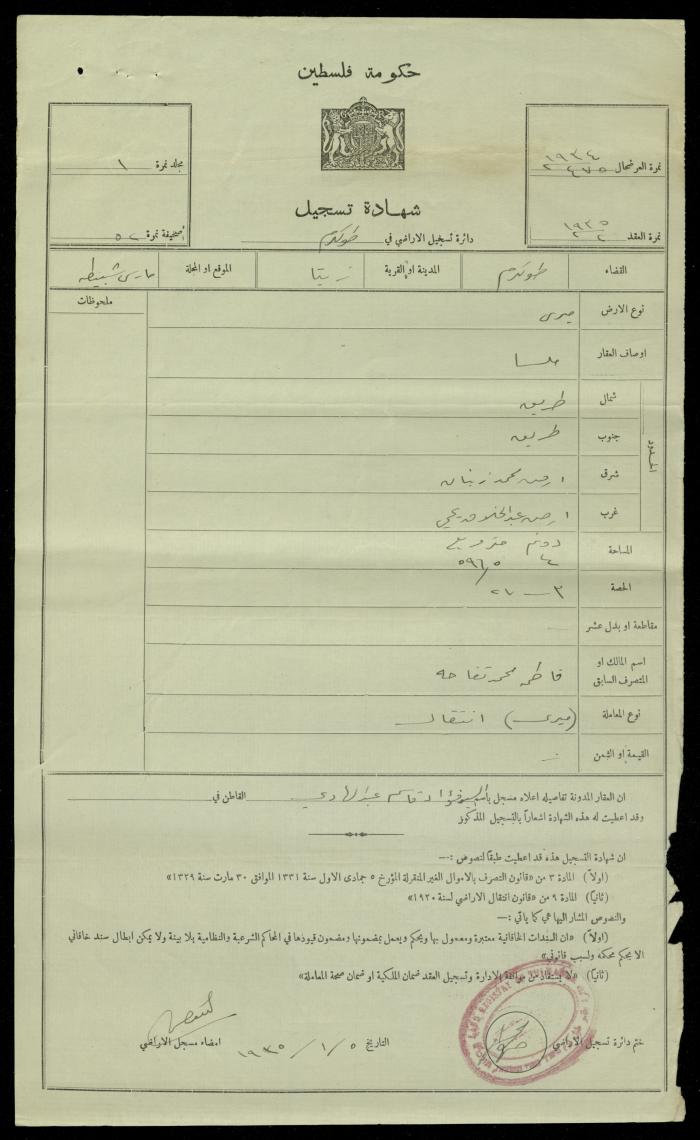 حكومة فلسطين
نمرة العرضحال ١٩٣٤ / ٢٤٧٥
مجلد نمرة ١
شهادة تسجيل
دائرة تسجيل الاراضي في طولكرم
نمرة العقد ١٩٣٥
صحيفة نمرة ٥٢
القضاء طولكرم المدينة او القرية زيتا الموقع او المحلة مارس شبيطه
ملحوظات
نوع الارض ميرى
اوصاف العقار ملسا
الحدود
شمال طريق
جنوب طريق
شرق ارض محمد
غرب ارض عبد
المساحة دونم متر مربع
٢٤ ٥٩٦/٥
الحصة ٣
مقاطعة او بدل عشر
اسم المالك او المتصرف السابق فاطمه محمد تفاحه
نوع المعاملة (ميرى) انتقال
القيمة او الثمن
ان العقار المدونة تفاصيله اعلاه مسجل باسم السيد فؤاد قاسم عبد الهادي القاطن في
وقد اعطيت له هذه الشهادة اشعاراً بالتسجيل المذكور
ان شهادة التسجيل هذه قد اعطيت طبقاً لنصوص :—
(اولاً) المادة ٣ من «قانون التصرف بالاموال الغير المنقولة المؤرخ ٥ جمادى الاول سنة ١٣٣١ الموافق ٣٠ مارت سنة ١٣٢٩»
(ثانياً) المادة ٩ من «قانون انتقال الاراضي لسنة ١٩٢٠»
والنصوص المشار اليها هي كما يأتي :—
(اولاً) «ان السندات الخاقانية معتبرة ومعمول بها ويحكم ويعمل بمضمونها ومضمون قيودها في المحاكم الشرعية والنظامية بلا بينة ولا يمكن ابطال سند خاقاني
الا بحكم محكمة ولسبب قانوني»
(ثانياً) «لا يستفاد من موافقة الادارة وتسجيل العقد ضمان الملكية او ضمان صحة المعاملة»
ختم دائرة تسجيل الاراضي
التاريخ ٥/١/١٩٣٥
امضاء مسجل الاراضي
LAND REGISTRY